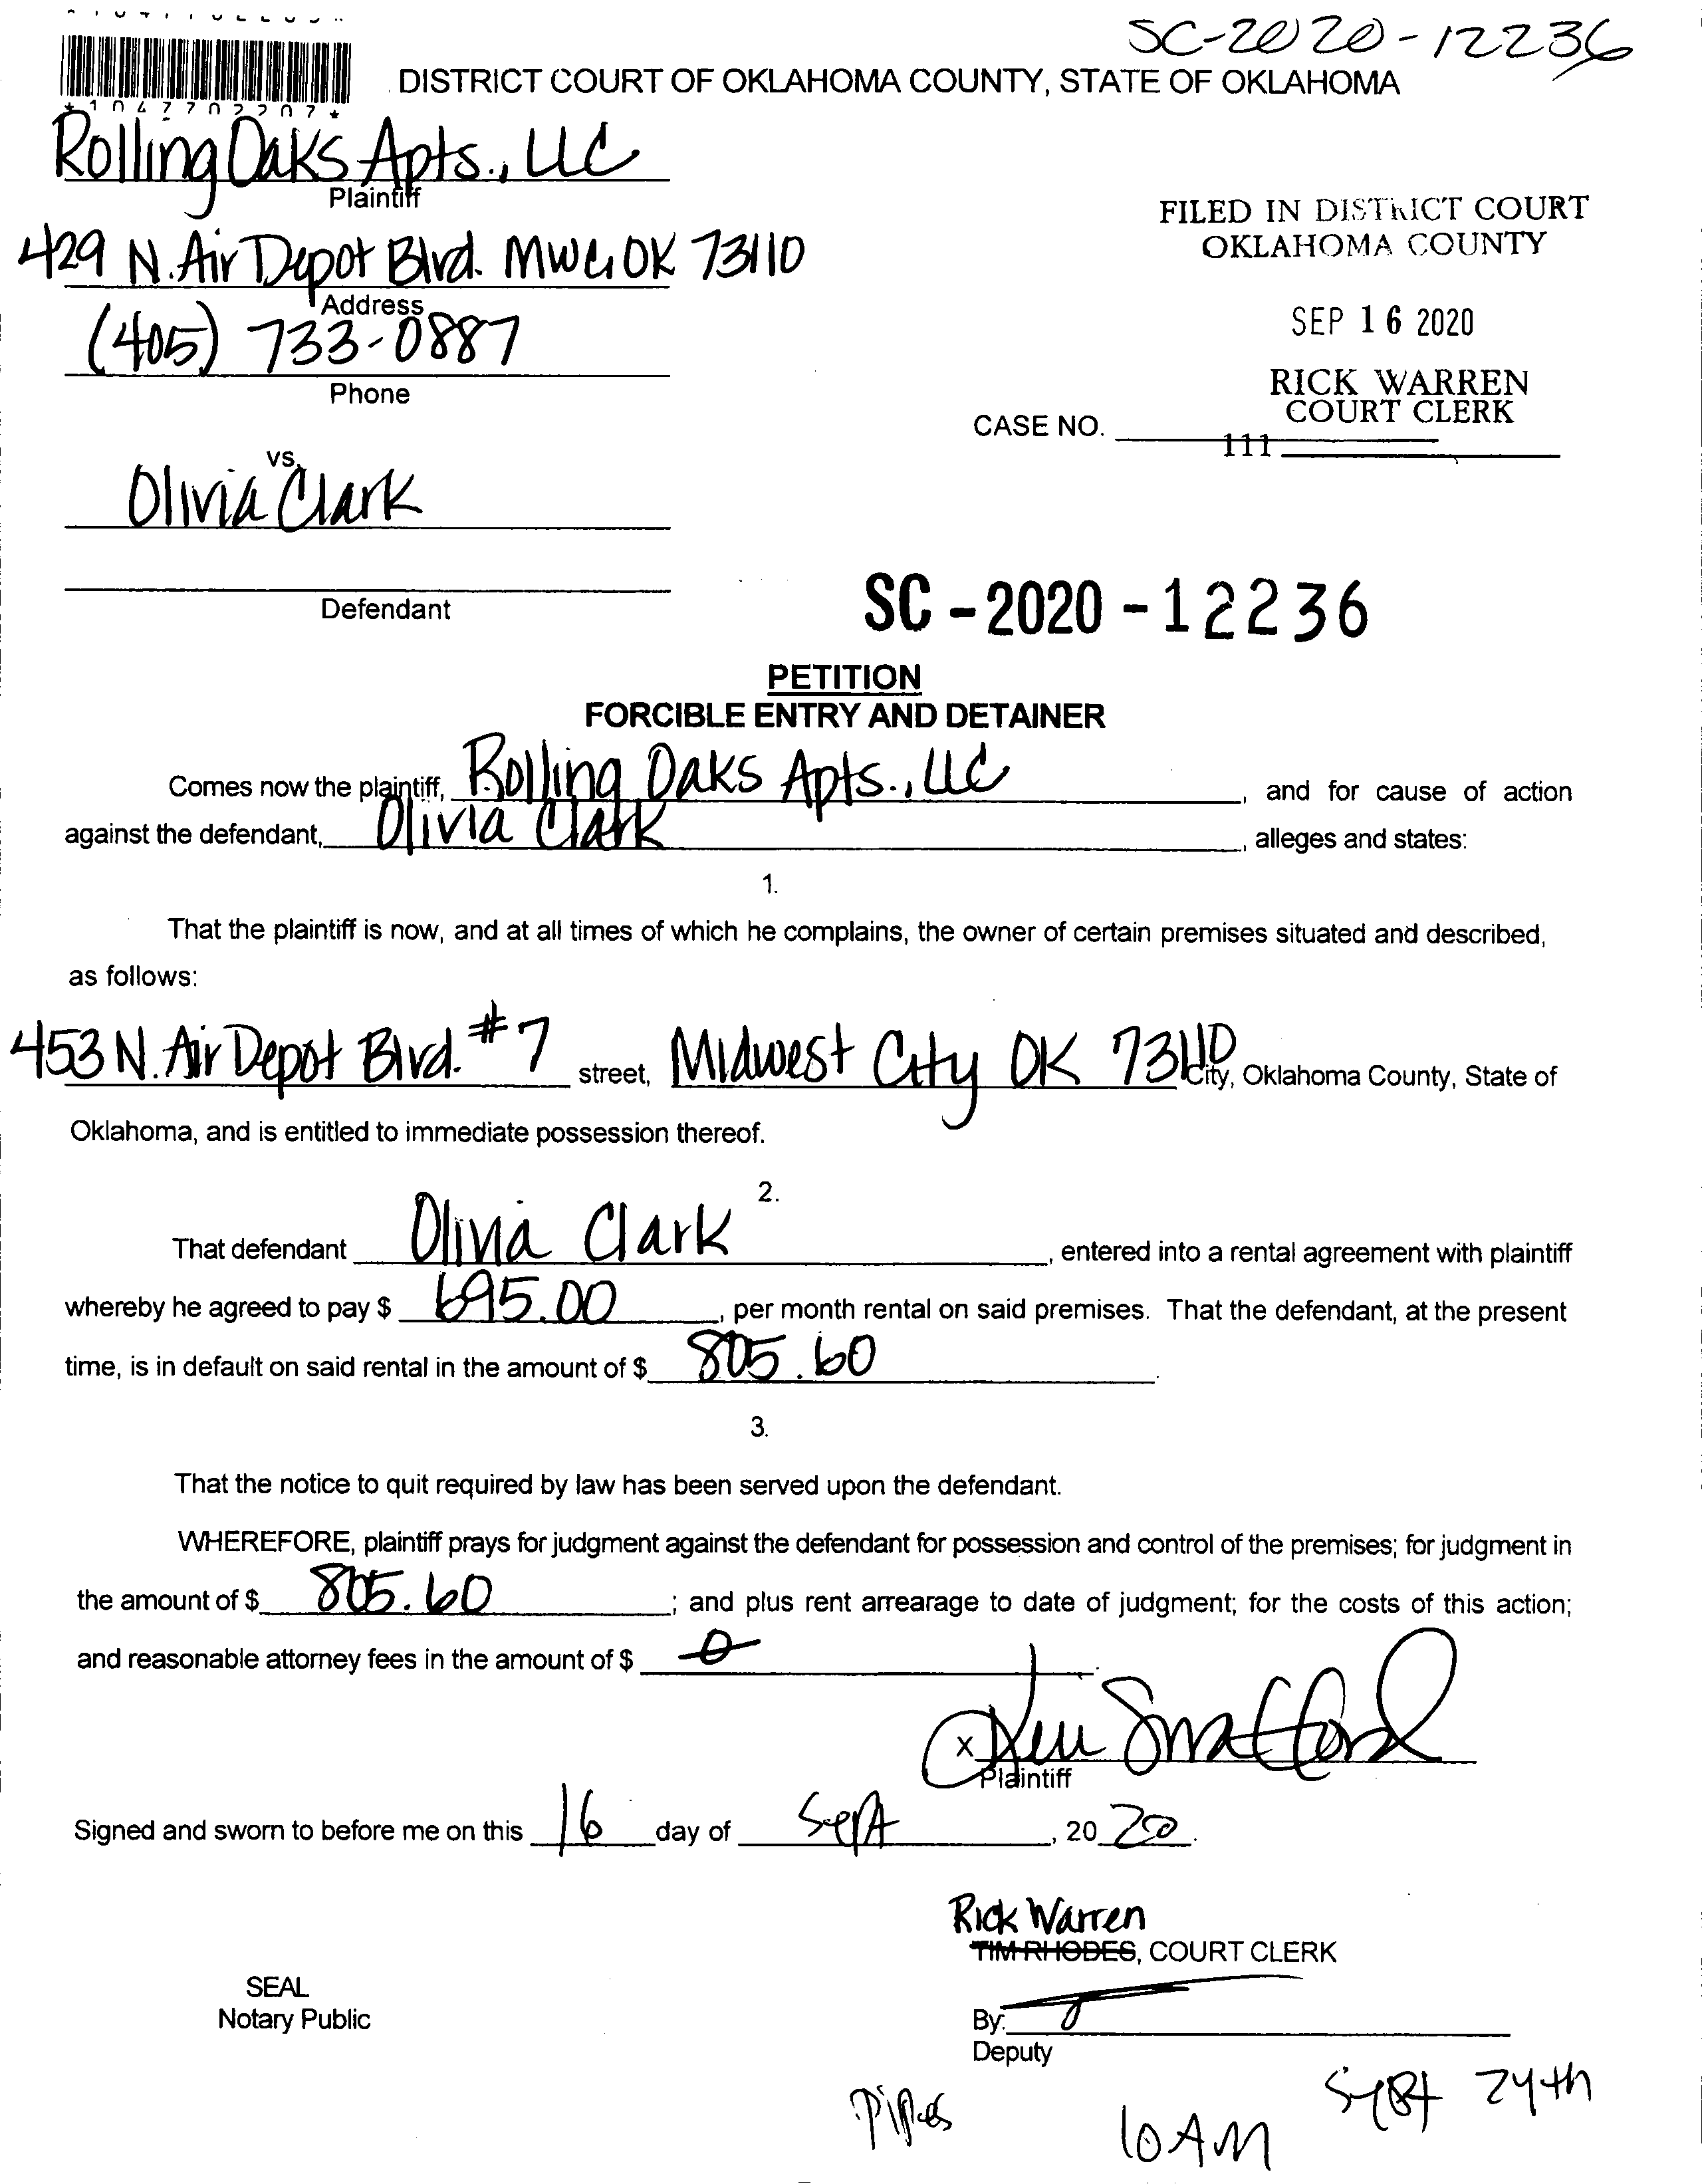 SC-2020-12236
DISTRICT COURT OF OKLAHOMA COUNTY, STATE OF OKLAHOMA
Rolling Oaks Apts., LLC
Plaintiff
429 N. Air Depot Blvd. MWC, OK 73110
Address
(405) 733-0887
Phone
FILED IN DISTRICT COURT
OKLAHOMA COUNTY
SEP 16 2020
RICK WARREN
COURT CLERK
CASE NO.
111
vs.
Olivia Clark
Defendant
SC-2020-12236
PETITION
FORCIBLE ENTRY AND DETAINER
Comes now the plaintiff, Rolling Oaks Apts., LLC, and for cause of action
against the defendant, Olivia Clark, alleges and states:
1.
That the plaintiff is now, and at all times of which he complains, the owner of certain premises situated and described,
as follows:
453 N. Air Depot Blvd. #7 street, Midwest City OK 73110 City, Oklahoma County, State of
Oklahoma, and is entitled to immediate possession thereof.
2.
That defendant Olivia Clark, entered into a rental agreement with plaintiff
whereby he agreed to pay $ 695.00, per month rental on said premises. That the defendant, at the present
time, is in default on said rental in the amount of $ 805.60.
3.
That the notice to quit required by law has been served upon the defendant.
WHEREFORE, plaintiff prays for judgment against the defendant for possession and control of the premises; for judgment in
the amount of $ 805.60; and plus rent arrearage to date of judgment; for the costs of this action;
and reasonable attorney fees in the amount of $ 0.
x
Plaintiff
Signed and sworn to before me on this 16 day of Sept, 2020.
Rick Warren
TIM RHODES, COURT CLERK
SEAL
Notary Public
By:
Deputy
10 AM
Sept 24th